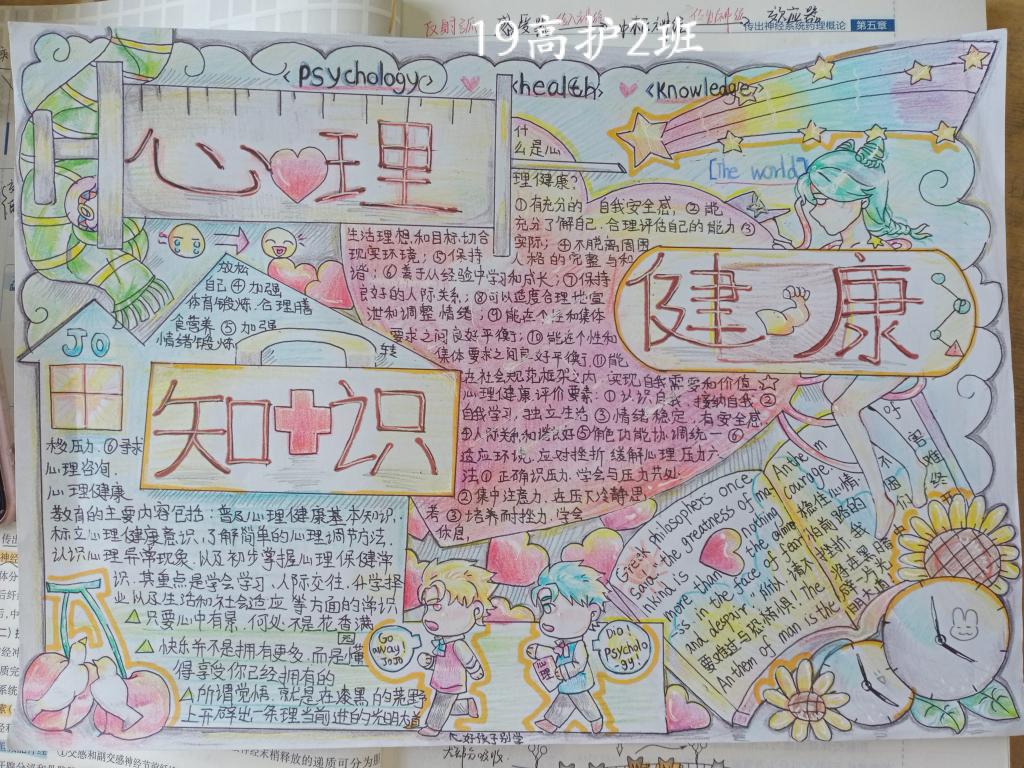 19高护2班
传出神经系统药理概论 第五章
<Psychology> <health> <Knowledge>
心理
健康
知识
[The world]
什
么是心
理健康?
①有充分的 自我安全感,②能
充分了解自己.合理评估自己的能力③
生活理想,和目标,切合
实际;④不脱离周围
现实环境;⑤保持
人格的完整与和
谐;⑥善于从经验中学习和成长;⑦保持
良好的人际关系;⑧可以适度合理地宣
泄和调整情绪;⑨能在个性和集体
要求之间良好平衡;⑩能在个性和
集体要求之间良好平衡,⑪能
在社会规范框架之内 实现自我需要和价值
心理健康评价要素:①认识自我 接纳自我②
自我学习,独立生活③情绪稳定,有安全感
④人际关系和谐良好⑤角色功能协调统一⑥
适应环境,应对挫折 缓解心理压力六
法①正确识压力.学会与压力共处
②集中注意力.在压下冷静思
考③培养耐挫力.学会
放松
自己④加强
体育锻炼.合理膳
食营养 ⑤加强
情绪锻炼
转
移压力.⑥寻求
心理咨询.
JO
心理健康
教育的主要内容包括:普及心理健康基本知识,
标立心理健康意识,了解简单的心理调节方法,
认识心理异常现象.以及初步掌握心理保健常
识.其重点是学会学习.人际交往.升学择
业以及生活和社会适应等方面的常识
只要心中有景.何必不是花香满
园
快乐并不是拥有更多.而是懂
得享受你已经拥有的
所谓觉悟.就是在漆黑的荒野
上开辟出一条理当前进的光明大道
Go
away!
JoJo
Dio!
Psycholo
gy!
心理
Greek philosophers once
said "the greatness of ma
nkind is nothing
more than the calmne
ss in the face of fear
and despair" 所以,请不
要难过与恐惧惧! The
Anthem of man is the
Anthem
courage.
稳住心情.